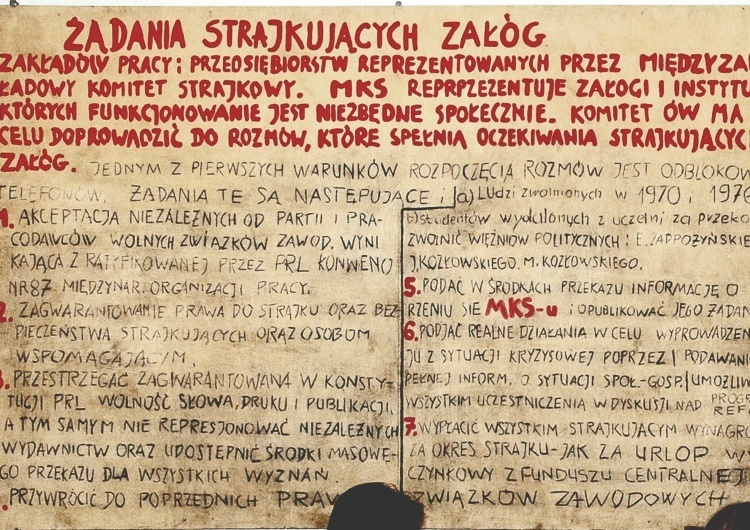 ŻĄDANIA STRAJKUJĄCYCH ZAŁÓG
ZAKŁADÓW PRACY i PRZEDSIĘBIORSTW REPREZENTOWANYCH PRZEZ MIĘDZYZA
ŁADOWY KOMITET STRAJKOWY. MKS REPRPZEZENTUJE ZAŁOGI I INSTYTU
KTÓRYCH FUNKCJONOWANIE JEST NIEZBĘDNE SPOŁECZNIE. KOMITET ÓW MA
CELU DOPROWADZIĆ DO ROZMÓW, KTÓRE SPEŁNIĄ OCZEKIWANIA STRAJKUJĄCYC
ZAŁÓG. JEDNYM Z PIERWSZYCH WARUNKÓW ROZPOCZĘCIA ROZMÓW JEST ODBLOKOW
TELEFONÓW. ŻĄDANIA TE SĄ NASTĘPUJĄCE:
1. AKCEPTACJA NIEZALEŻNYCH OD PARTII I PRA-
CODAWCÓW WOLNYCH ZWIĄZKÓW ZAWOD. WYNI
KAJĄCA Z RATYFIKOWANEJ PRZEZ PRL KONWENCJI
NR 87 MIĘDZYNAR. ORGANIZACJI PRACY.
2. ZAGWARANTOWANIE PRAWA DO STRAJKU ORAZ BEZ-
PIECZEŃSTWA STRAJKUJĄCYCH ORAZ OSOBOM
WSPOMAGAJĄCYM.
3. PRZESTRZEGAĆ ZAGWARANTOWANĄ W KONSTY-
TUCJI PRL WOLNOŚĆ SŁOWA, DRUKU I PUBLIKACJI,
A TYM SAMYM NIE REPRESJONOWAĆ NIEZALEŻNYCH
WYDAWNICTW ORAZ UDOSTĘPNIĆ ŚRODKI MASOWE-
GO PRZEKAZU DLA WSZYSTKICH WYZNAŃ
. PRZYWRÓCIĆ DO POPRZEDNICH PRAW
a) LUdzi zwolnionych w 1970 i 1976
b) studentów wydalonych z uczelni za przeko
ZWOLNIĆ WIĘŹNIÓW POLITYCZNYCH: E. ZADROŻYŃSKIE
J. KOZŁOWSKIEGO. M. KOZŁOWSKIEGO.
5. PODAĆ W ŚRODKACH PRZEKAZU INFORMACJĘ O
RZENIU SIĘ MKS-u i OPUBLIKOWAĆ JEGO ŻĄDAN
6. PODJĄĆ REALNE DZIAŁANIA W CELU WYPROWADZEN
JU Z SYTUACJI KRYZYSOWEJ POPRZEZ | PODAWANI
PEŁNEJ INFORM. O SYTUACJI SPOŁ-GOSP. | UMOŻLIW
WSZYSTKIM UCZESTNICZENIA W DYSKUSJI NAD PROGR
REF
7. WYPŁACIĆ WSZYSTKIM STRAJKUJĄCYM WYNAGRO
ZA OKRES STRAJKU-JAK ZA URLOP WY
CZYNKOWY Z FUNDUSZU CENTRALNEJ
ZWIĄZKÓW ZAWODOWYCH